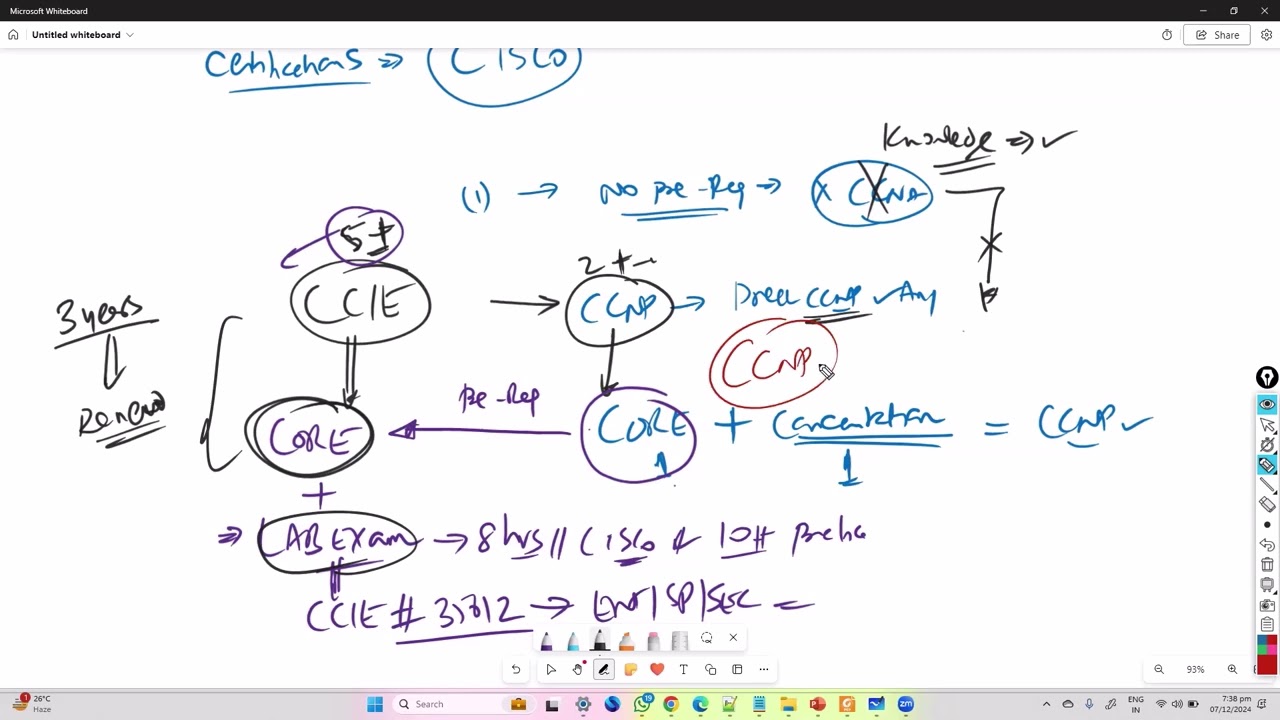 Microsoft Whiteboard
Untitled whiteboard
Share
Certifications ⇒ CISCO
Knowledge ⇒ ✓
(1) → No pre-Req → x CCNA
5+
2+
CCIE → CCNP → Direct CCNP ✓ Any
3 years
CCNP
Renew
Pre-Req
CORE ← CORE + Concentration = CCNP ✓
1 1
+
⇒ LAB Exam → 8 hrs // Cisco
CCIE # → Ent | SP | SEC =
93%
26°C
Haze
Search
19
ENG
IN
7:38 pm
07/12/2024